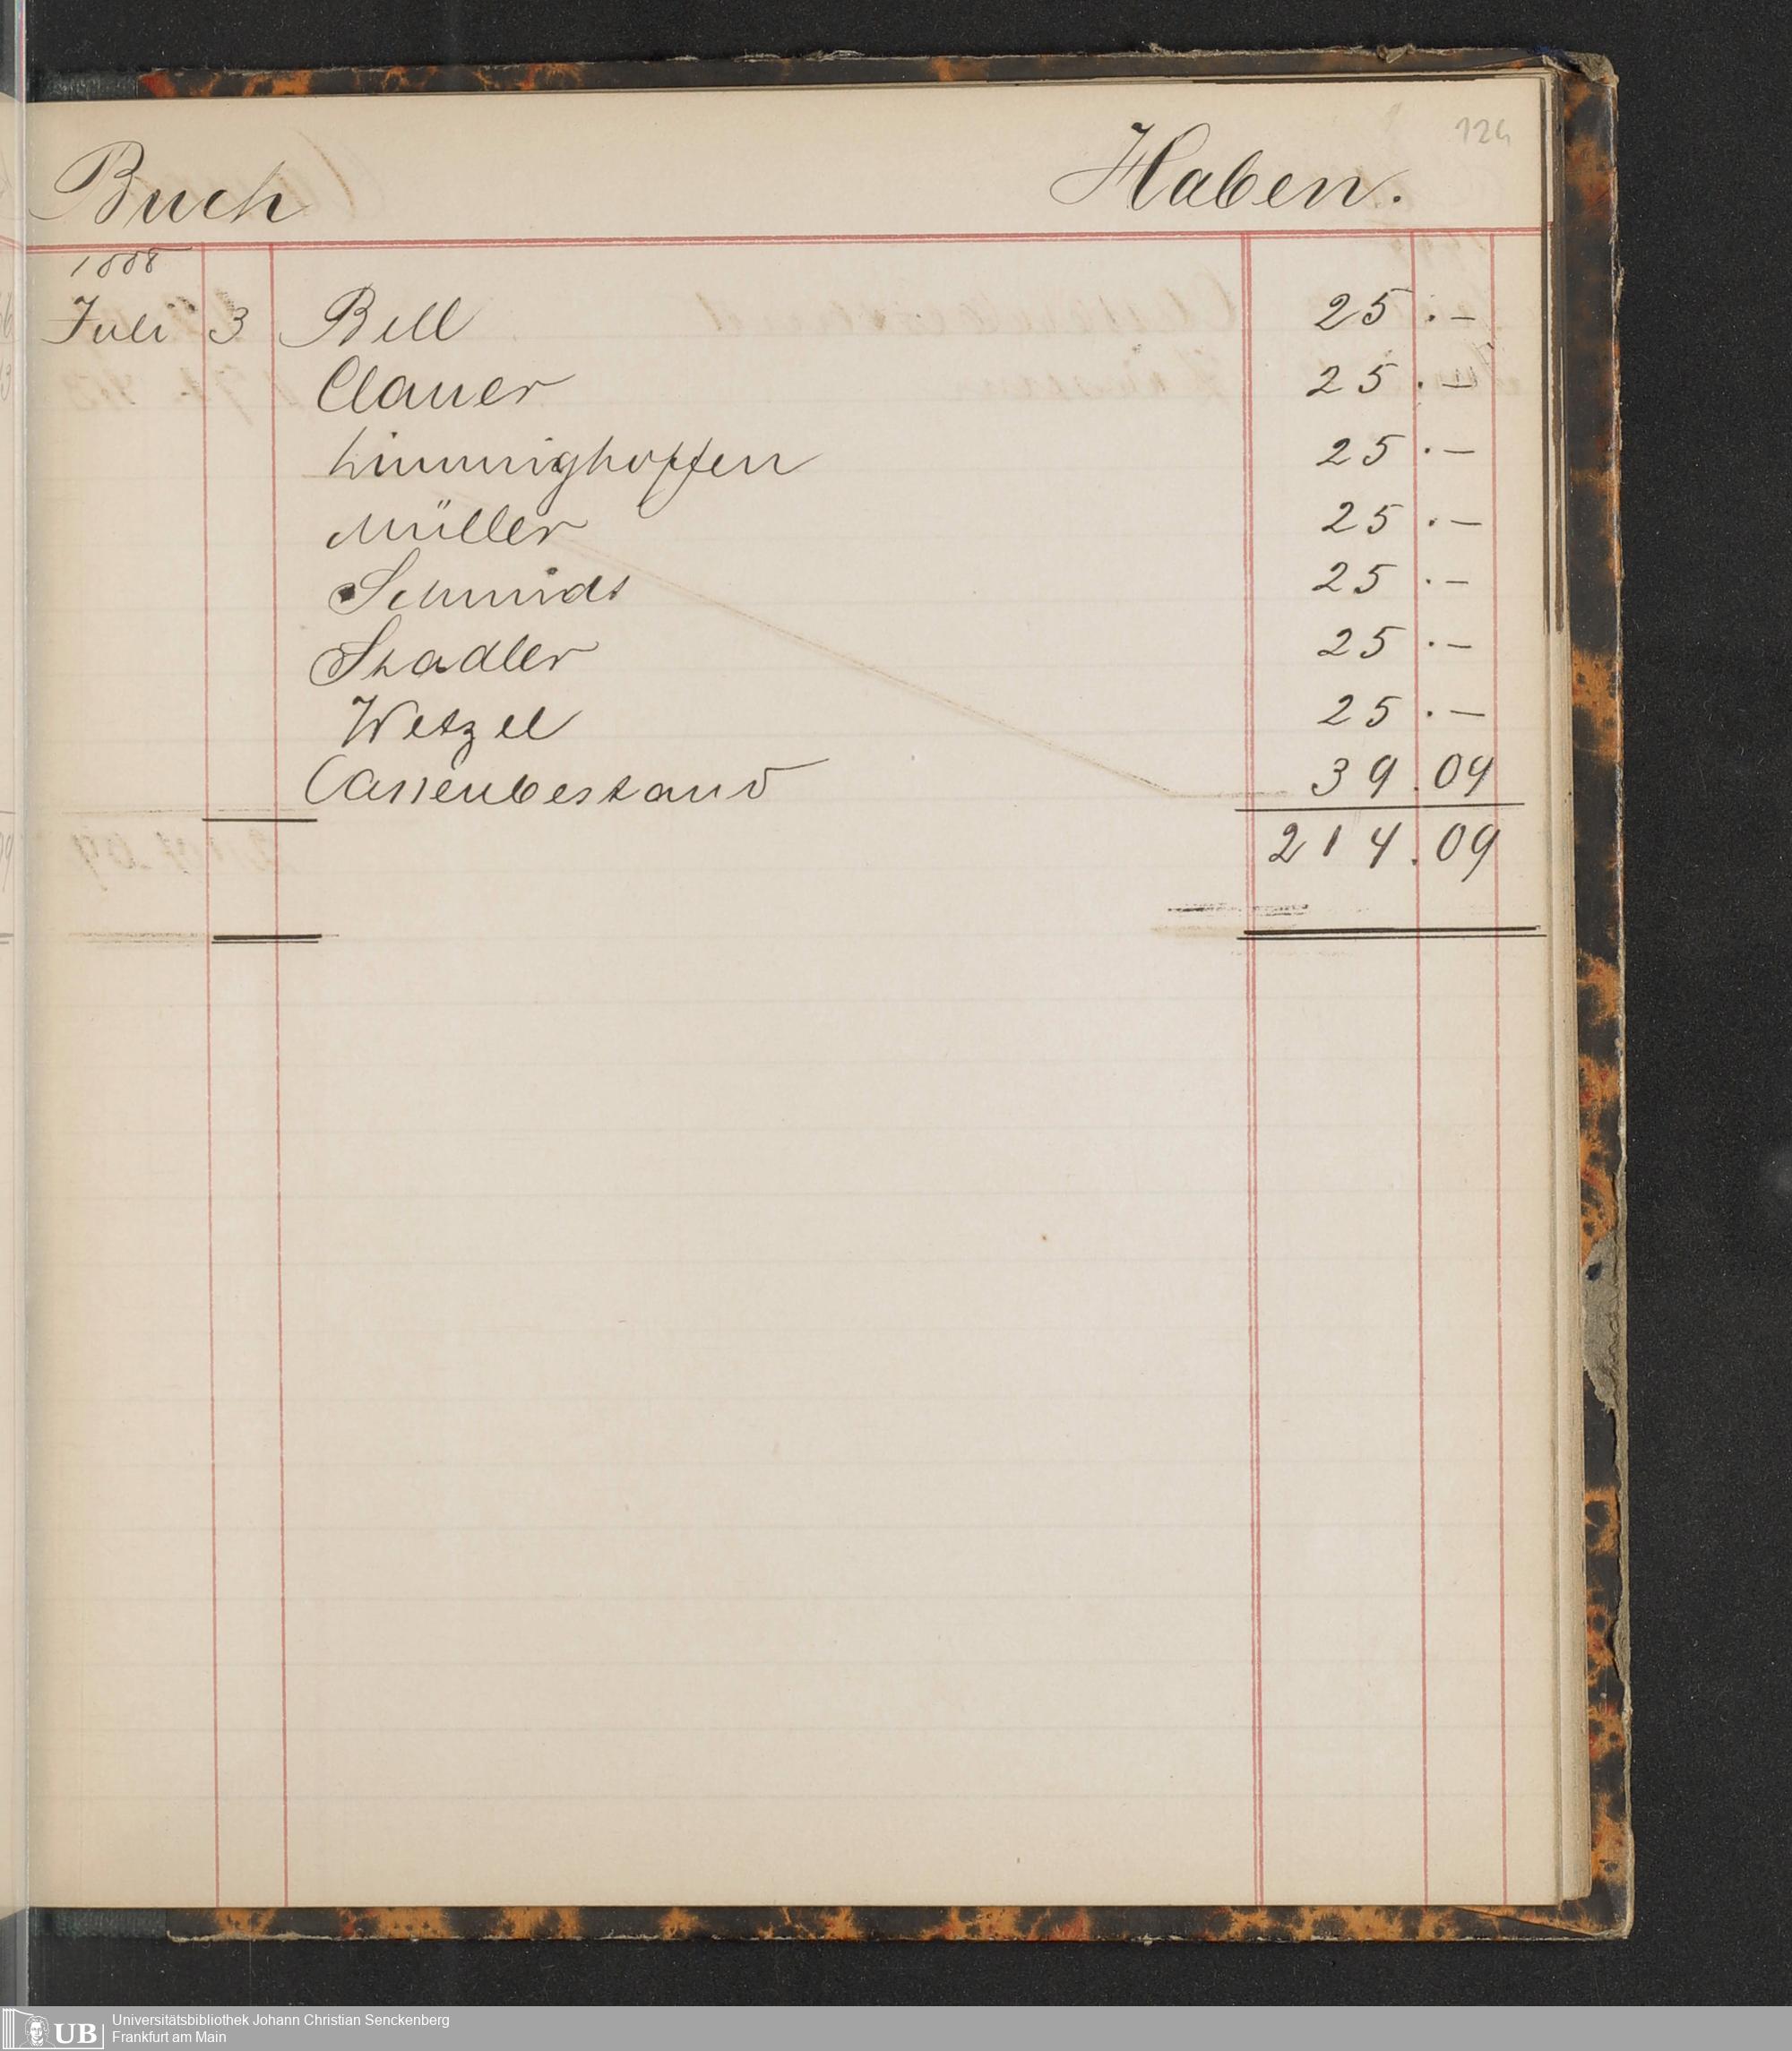 124
Buch Haben.
1888
Juli 3 Bell 25 . –
Clauer 25 . –
Limmighoffen 25 . –
Müller 25 . –
Schmidt 25 . –
Stadler 25 . –
Wetzel 25 . –
Cassenbestand 39 . 09
214 . 09
UB Universitätsbibliothek Johann Christian Senckenberg
Frankfurt am Main